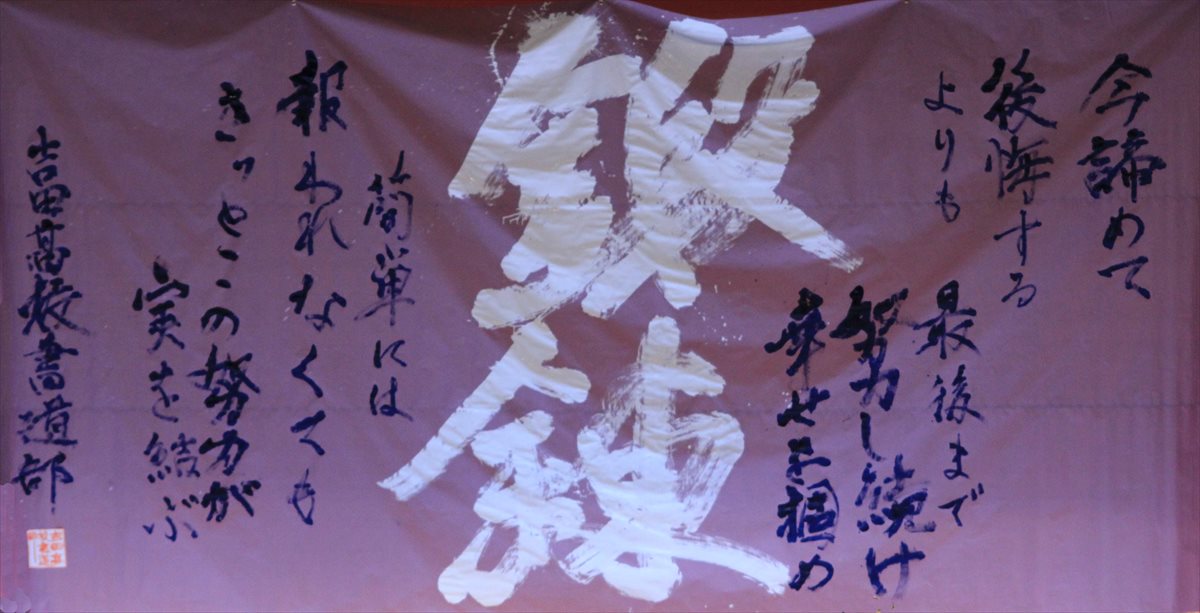 今諦めて
後悔する
よりも
最後まで
努力し続け
幸せを掴め
鍛錬
簡単には
報われなくても
きっとこの努力が
実を結ぶ
吉田高校書道部